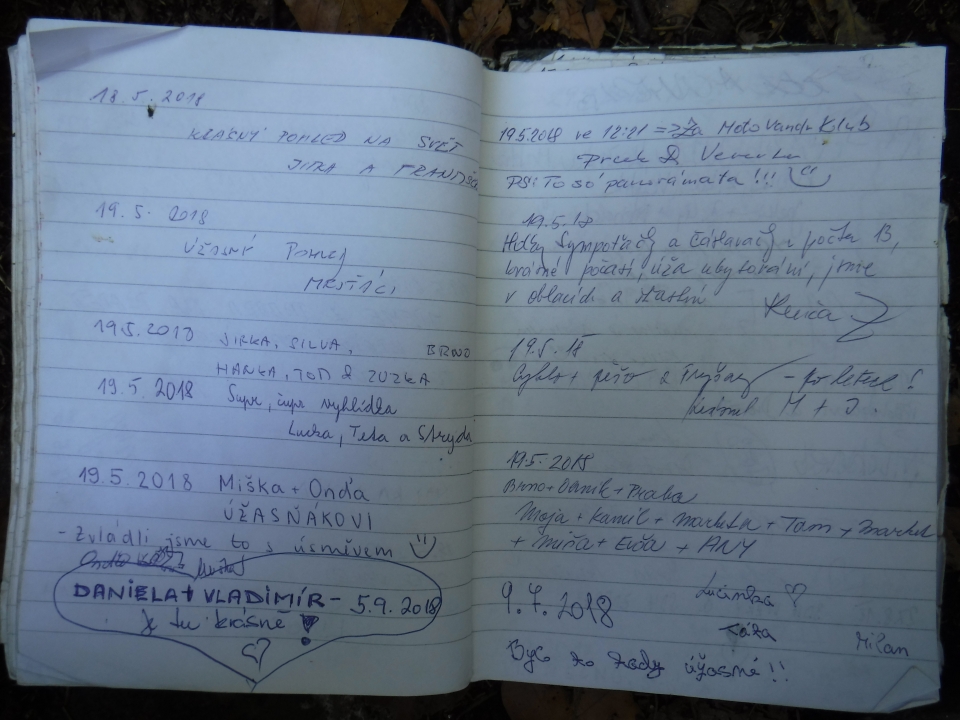 18.5.2018
KRÁSNÝ POHLED NA SVĚT
JIRKA A FRANTIŠ
19.5.2018
ÚŽASNÝ POHLED
MRŠŤÁCI
19.5.2018 JIRKA, SILVA, BRNO
HANKA, TOM & ZUZKA
19.5.2018 Supr, čupr vyhlídka
Lucka, Teta a Strýda
19.5.2018 Miška + Onďa
ÚŽASŇÁKOVI
- Zvládli jsme to s úsměvem
DANIELA + VLADIMÍR - 5.9.2018
Je tu krásně!
19.5.2018 ve 12:21 => Za Moto Vandr Klub
Prcek & Verunka
PS: To só panorámata!!!
19.5.18
a počtu 13,
krásné počasí, úža ubytování, jsme
v oblacích a šťastní
19.5.18
Cyklo + pěšo - po letech!
M + J.
19.5.2018
Brno + + Praha
Moja + Kamil + Markéta + Tom + Market
+ Míňa + Evča + ANY
9.7.2018 Lucinka
Káža
Milan
Bylo to tady úžasné!!